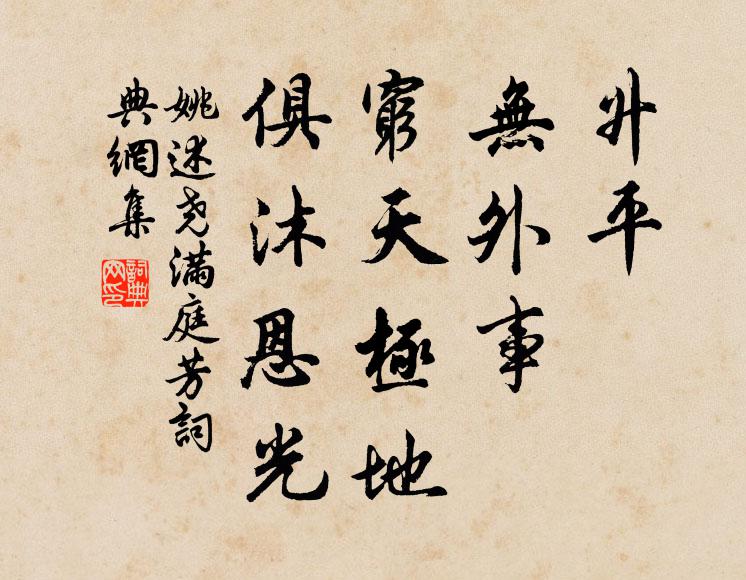 升平
無外事
窮天極地
俱沐恩光
姚述尧滿庭芳詞
典網集
詞典網印